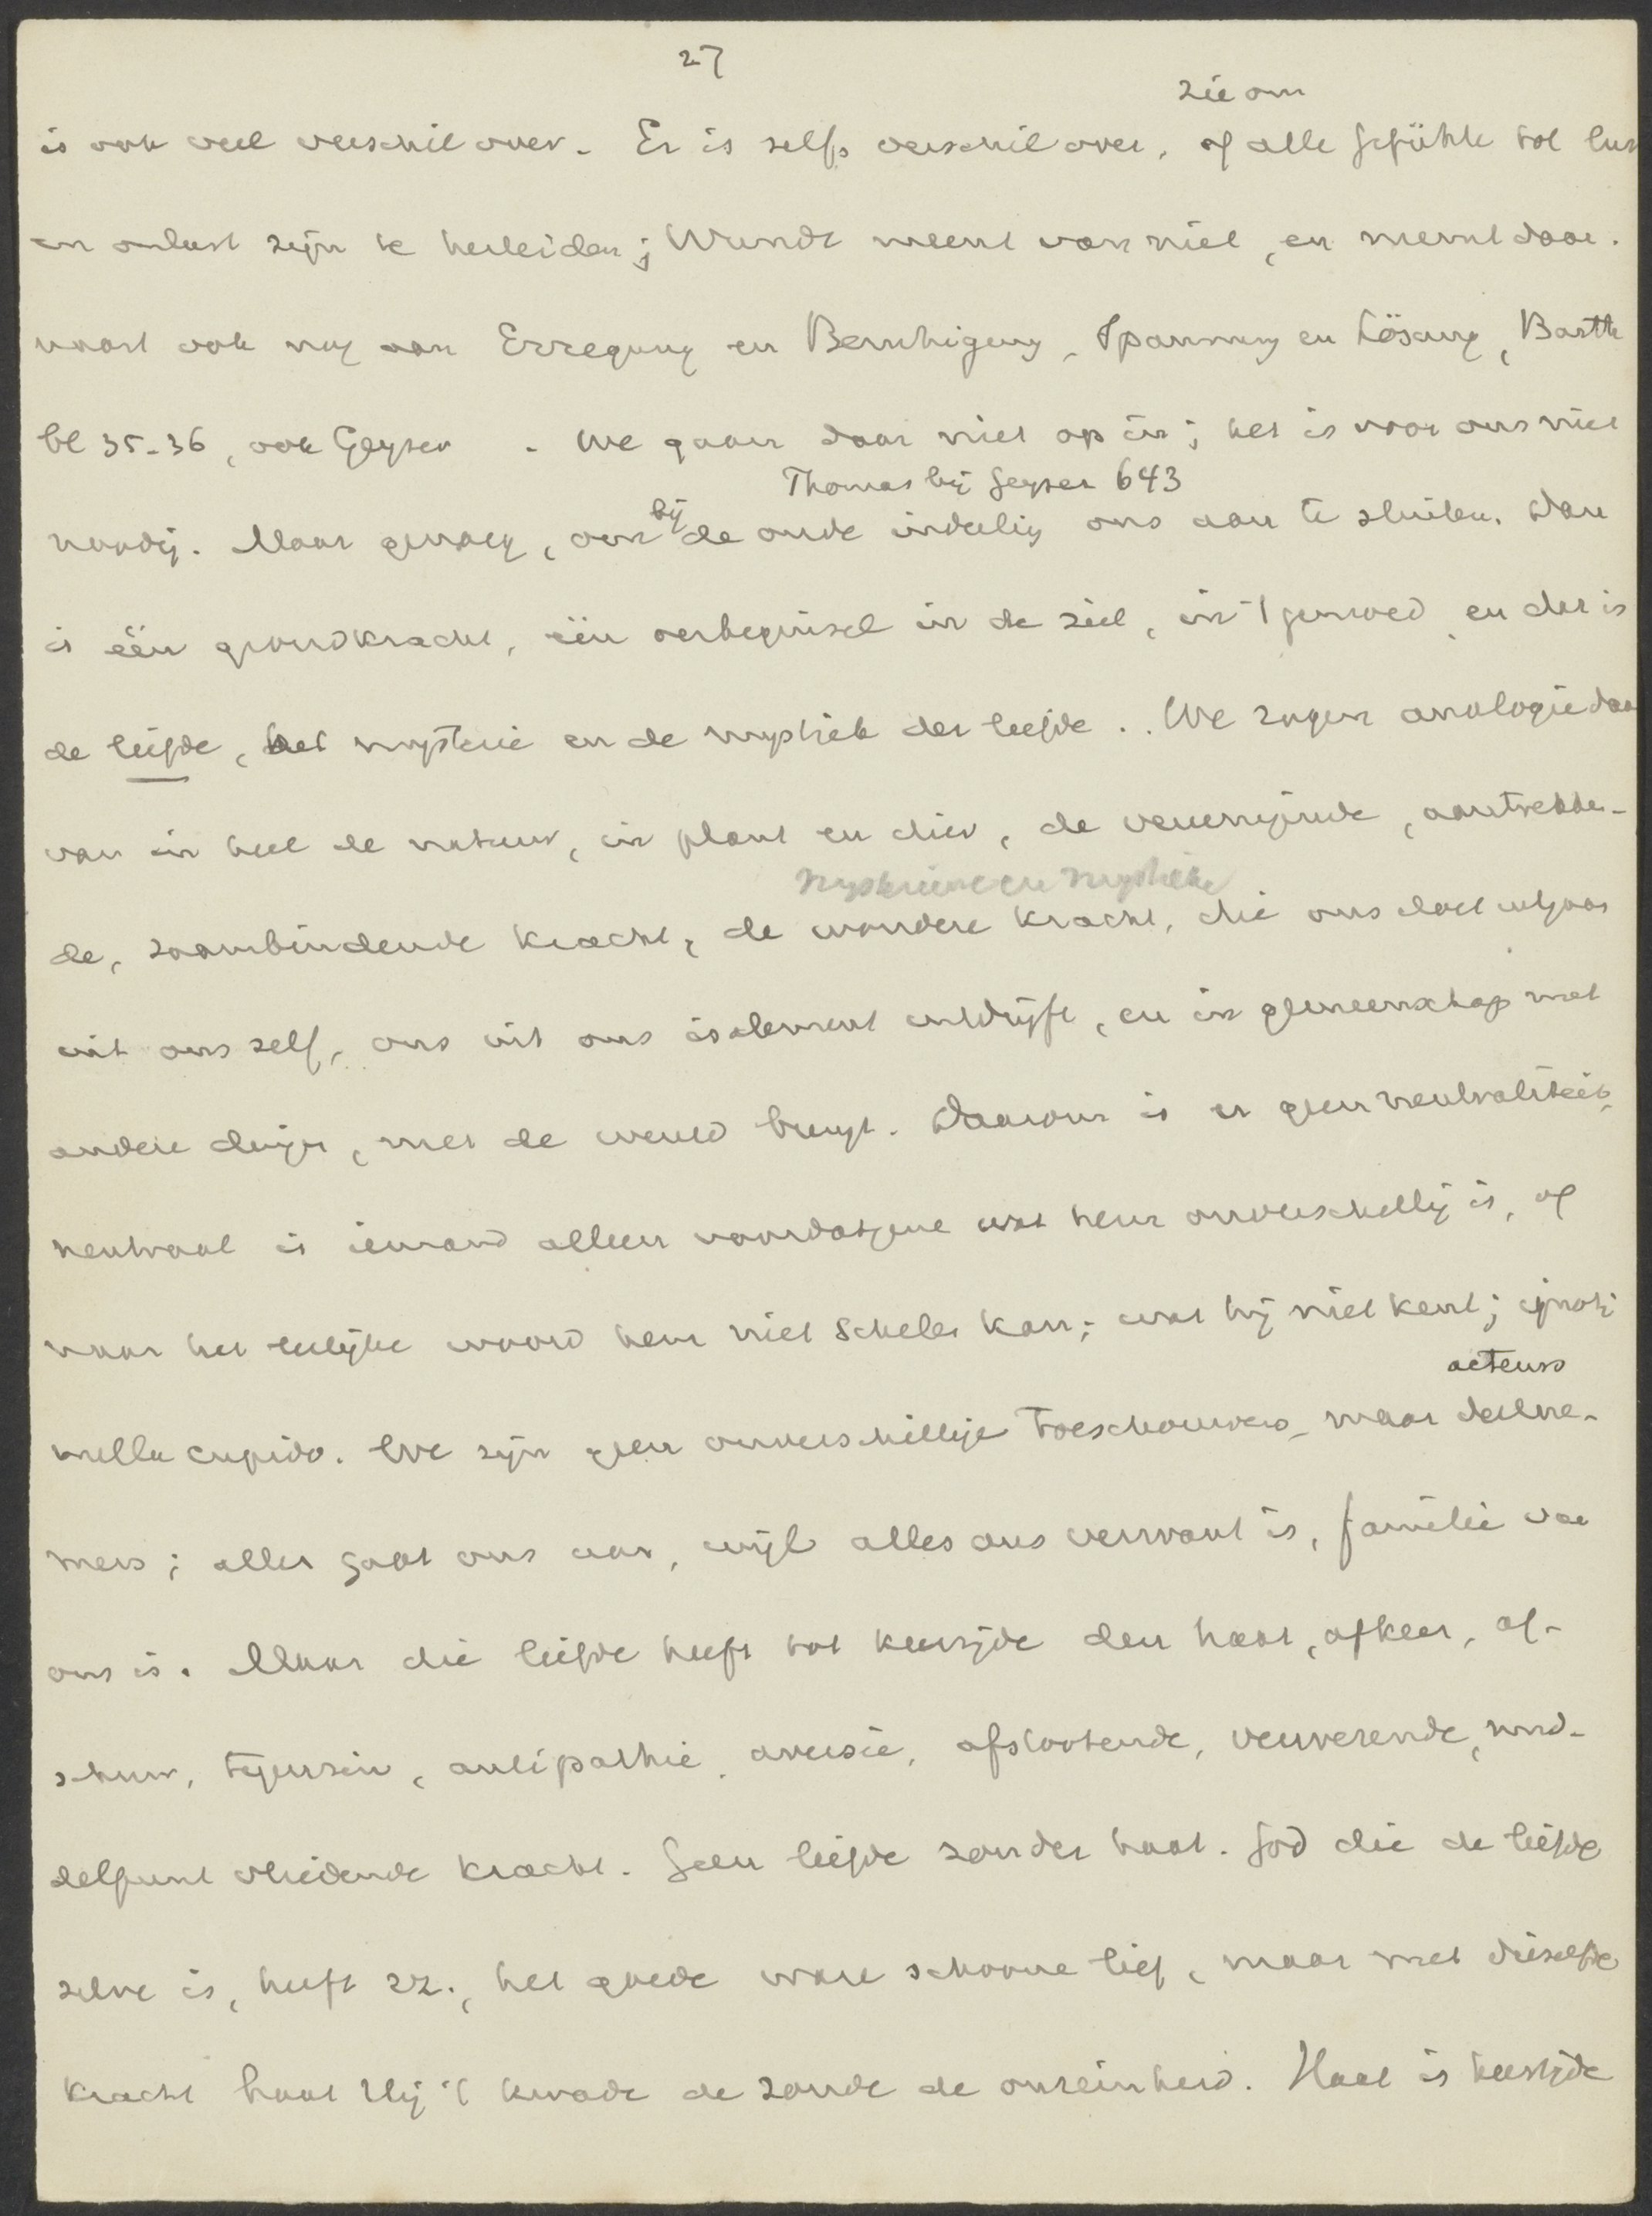 27
zie om
is ook veel verschil over. Er is zelfs verschil over, of alle Gefühle tot lust
en onlust zijn te herleiden; Wundt meent van niet, en neemt daar.
naast ook nog aan Erregung en Beruhigung, Spannung en Lösung, Barth
bl 35-36, ook Geyser . We gaan daar niet op in; het is voor ons niet
Thomas bij Geyser 643
noodig. Maar genoeg, om bij de oude indeeling ons aan te sluiten. Dan
is één grondkracht, één oerbeginsel in de ziel, in 't gemoed, en der is
de liefde, het mysterie en de mystiek der liefde .. We zagen analogie daar
van in heel de natuur, in plant en dier, de vereenigende, aantrekken-
mysterieuse en mystieke
de, zaambindende kracht, de wondere kracht, die ons doet uitgaan
uit ons zelf, ons uit ons isolement uitdrijft, en in gemeenschap met
andere dingen, met de wereld brengt. Daarom is er geen neutraliteit,
neutraal is iemand alleen voor datgene wat hem onverschillig is, of
naar het leelijke woord hem niet schelen kan; wat hij niet kent; ignoti
acteurs
nulla cupido. We zijn geen onverschillige toeschouwers, maar deelne-
mers; alles gaat ons aan, wijl alles ons verwant is, familie van
ons is. Maar die liefde heeft tot keerzijde den haat, afkeer, af-
schuw, tegenzin, antipathie, aversie, afstootende, verwerende, mid-
delpunt vliedende kracht. Geen liefde zonder haat. God die de liefde
zelve is, heeft zz., het goede ware schoone lief, maar met diezelfde
kracht haat Hij 't kwade de zonde de onreinheid. Haat is keerzijde